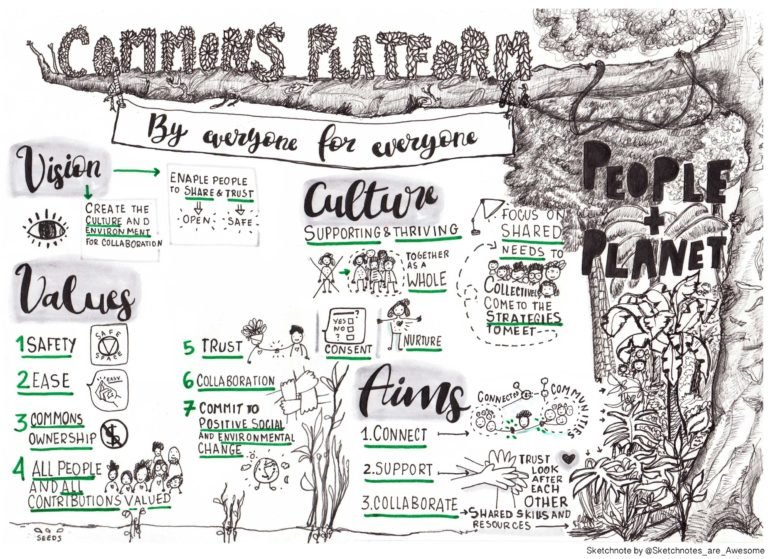 COMMONS PLATFORM
By everyone for everyone
PEOPLE
+
PLANET
Vision
CREATE THE
CULTURE AND
ENVIRONMENT
FOR COLLABORATION
ENAPLE PEOPLE
TO SHARE & TRUST
OPEN SAFE
Culture
SUPPORTING & THRIVING
TOGETHER
AS A
WHOLE
YES
NO
?
CONSENT
NURTURE
FOCUS ON
SHARED
NEEDS TO
COLLECTIVELY
COME TO THE
STRATEGIES
TO MEET
Values
1 SAFETY
SAFE
SPACE
2 EASE
EASY
3 COMMONS
OWNERSHIP
4 ALL PEOPLE
AND ALL
CONTRIBUTIONS VALUED
5 TRUST
6 COLLABORATION
7 COMMIT TO
POSITIVE SOCIAL
AND ENVIRONMENTAL
CHANGE
Aims
1. CONNECT
CONNECTED
COMMUNITIES
2. SUPPORT
TRUST
LOOK
AFTER
EACH
OTHER
3. COLLABORATE
SHARED SKILLS AND
RESOURCES
SEEDS
Sketchnote by @Sketchnotes_are_Awesome